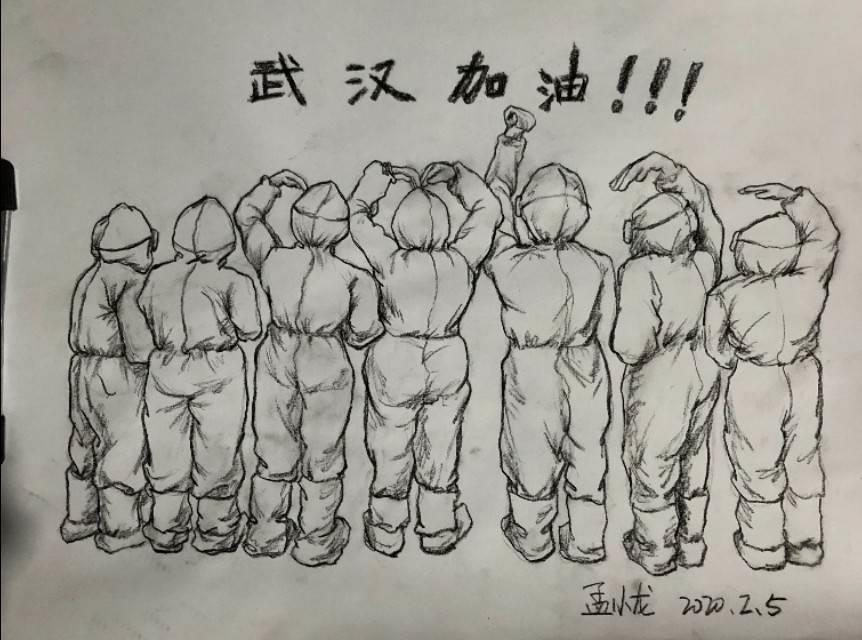 武汉加油!!!
孟小龙 2020.2.5